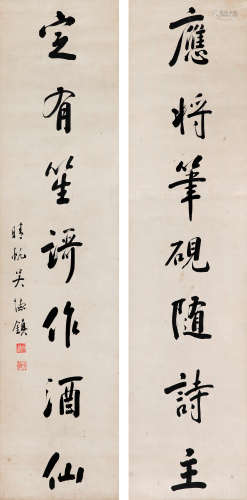 應將筆硯隨詩主
定有笙謌作酒仙
晴帆吳德鎮